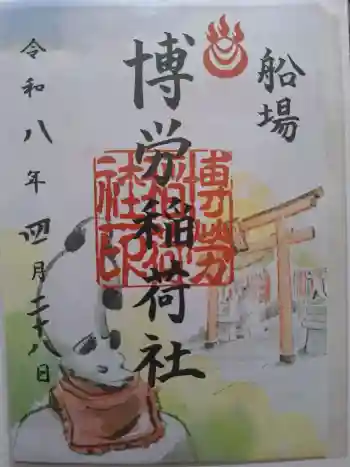 船場
博労稲荷社
博労
稲荷
社印
令和八年四月二十八日